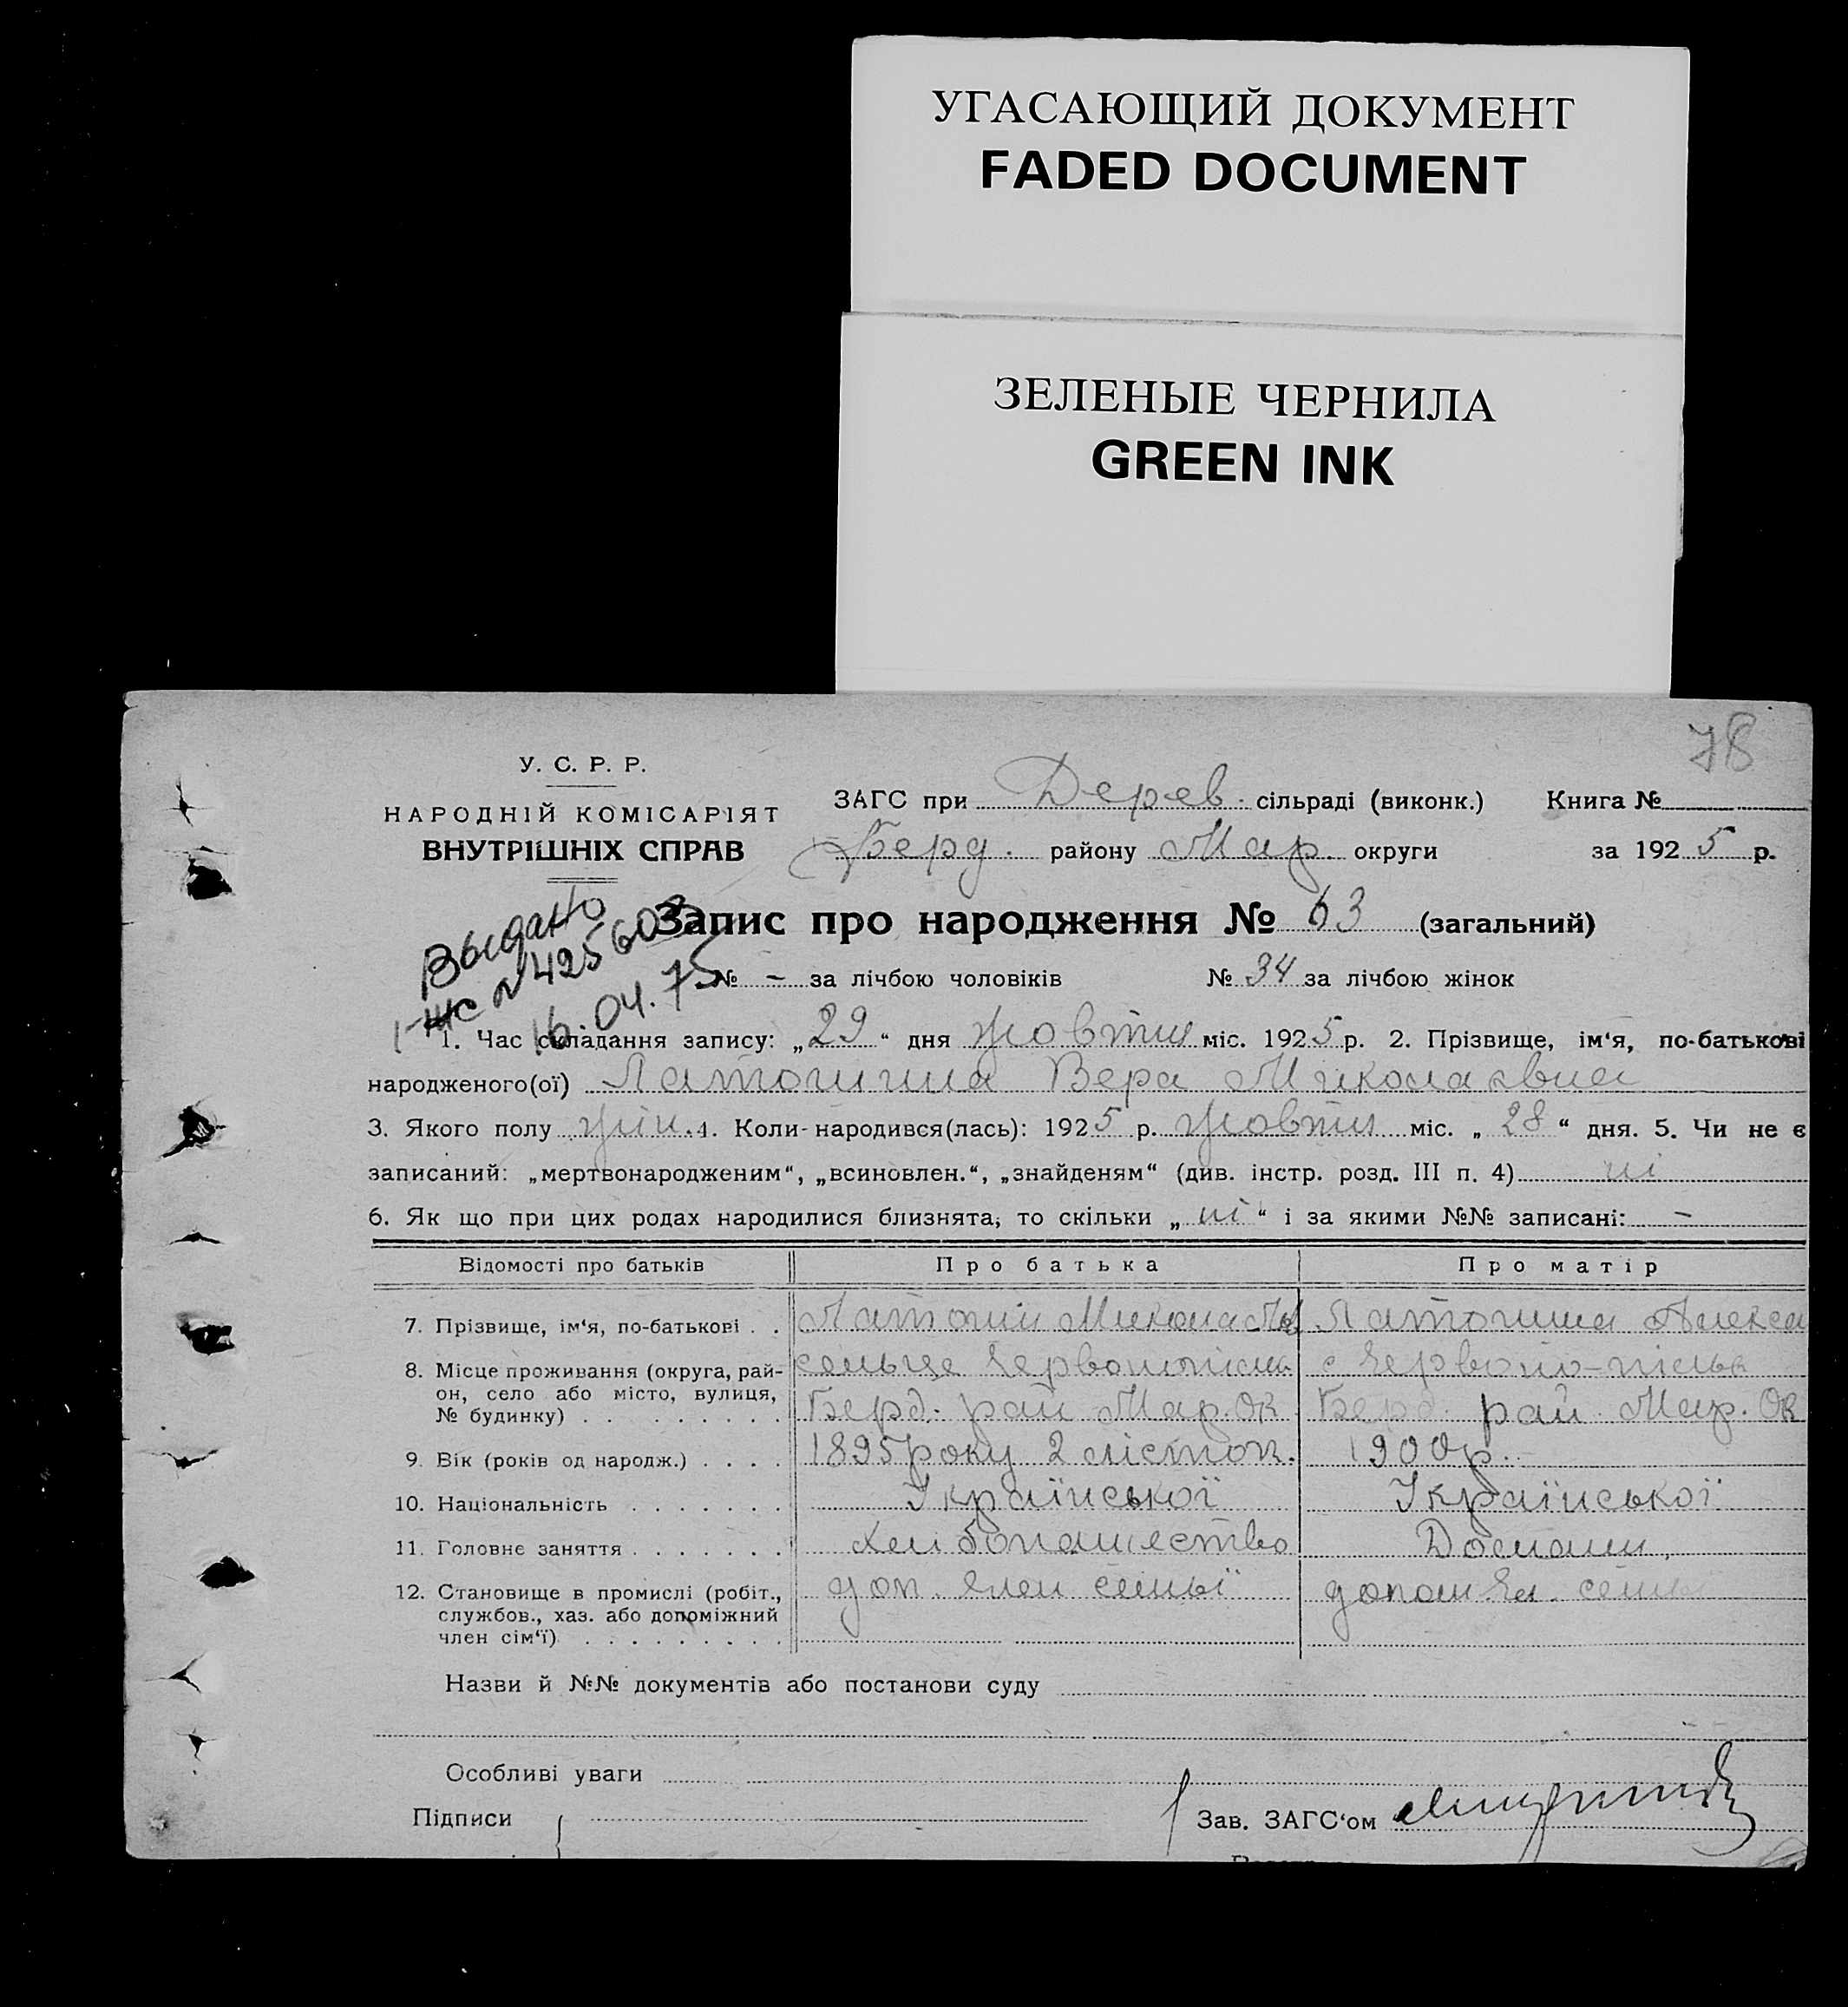 УГАСАЮЩИЙ ДОКУМЕНТ
FADED DOCUMENT
ЗЕЛЕНЫЕ ЧЕРНИЛА
GREEN INK
78
У. С. Р. Р.
НАРОДНІЙ КОМІСАРІЯТ
ВНУТРІШНІХ СПРАВ
ЗАГС при Дерев. сільраді (виконк.) Книга №
Берд. району Мар. округи за 1925 р.
Выдано
I-ЖС № 425603
16.04.75
Запис про народження № 63 (загальний)
№ - за лічбою чоловіків № 34 за лічбою жінок
1. Час складання запису: „29“ дня жовтня міс. 1925 р. 2. Прізвище, ім‘я, по-батькові
народженого(ої) Латогина Вера Миколаявна
3. Якого полу жін. 4. Коли-народився(лась): 1925 р. жовтня міс. „28“ дня. 5. Чи не є
записаний: „мертвонародженим“, „всиновлен.“, „знайденям“ (див. інстр. розд. III п. 4) ні
6. Як що при цих родах народилися близнята, то скільки „ні“ і за якими №№ записані: -
Відомості про батьків Про батька Про матір
7. Прізвище, ім‘я, по-батькові . . Латогин Микола Латогина Алекса
8. Місце проживання (округа, рай- сельце Червонопілка с Червоно-пілка
он, село або місто, вулиця, Берд. рай Мар. Ок Берд. рай. Мар. Ок
№ будинку) . . . . . . . . .
9. Вік (років од народж.) . . . . 1895 року 2 лістоп. 1900 р.
10. Національність . . . . . . . Української Української
11. Головне заняття . . . . . . . Хлібопашество Домашн.
12. Становище в промислі (робіт., доп. член семьї допом. чл. семьї
службов., хаз. або допоміжний
член сім‘ї) . . . . . . . . .
Назви й №№ документів або постанови суду
Особливі уваги
Підписи { Зав. ЗАГС‘ом